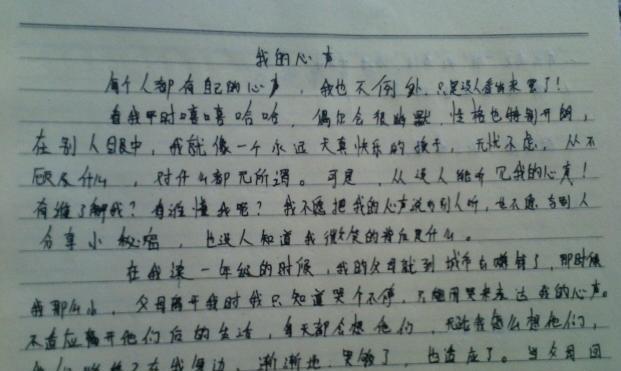 我的心声
每个人都有自己的心声，我也不例外，只是没人看出来罢了！
看我平时嘻嘻哈哈，偶尔会很幽默，性格也特别开朗，
在别人眼中，我就像一个永远天真快乐的孩子，无忧不虑，从不
顾及什么，对什么都无所谓。可是，从没人能听见我的心声！
有谁了解我？有谁懂我呢？我不愿把我的心声说与别人听，也不愿与别人
分享小秘密，也没人知道我微笑的背后是什么。
在我读一年级的时候，我的父母就到城市去赚钱了，那时候
我那么小，父母离开我时我只知道哭个不停，只能用哭来表达我的心声。
不适应离开他们后的生活，每天都会想他们，无论我怎么想他们，
在我身边，渐渐地，哭够了，也适应了。当父母回